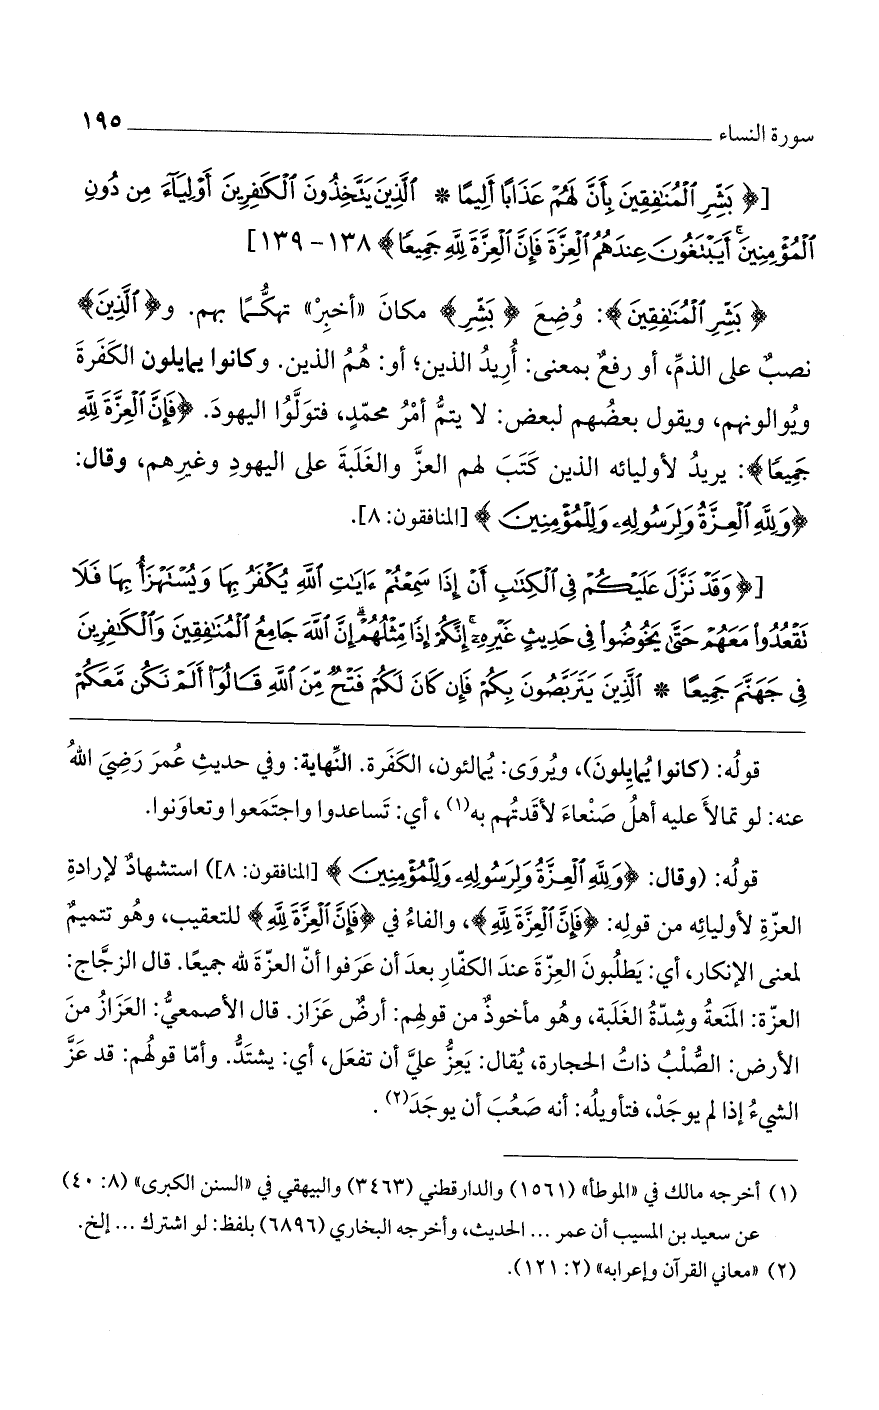 سورة النساء ــــــ ١٩٥
[﴿ بَشِّرِ ٱلْمُنَٰفِقِينَ بِأَنَّ لَهُمْ عَذَابًا أَلِيمًا * ٱلَّذِينَ يَتَّخِذُونَ ٱلْكَٰفِرِينَ أَوْلِيَآءَ مِن دُونِ
ٱلْمُؤْمِنِينَ ۚ أَيَبْتَغُونَ عِندَهُمُ ٱلْعِزَّةَ فَإِنَّ ٱلْعِزَّةَ لِلَّهِ جَمِيعًا﴾ ١٣٨-١٣٩]
﴿ بَشِّرِ ٱلْمُنَٰفِقِينَ﴾: وُضِعَ ﴿ بَشِّرِ﴾ مكانَ «أخبِرْ» تهكُّمًا بهم. و﴿ٱلَّذِينَ﴾
نصبٌ على الذمِّ، أو رفعٌ بمعنى: أُرِيدُ الذين؛ أو: هُمُ الذين. وكانوا يمايلون الكَفَرةَ
ويُوالونهم، ويقول بعضُهم لبعض: لا يتمُّ أمْرُ محمّدٍ، فتولَّوُا اليهودَ. ﴿فَإِنَّ ٱلْعِزَّةَ لِلَّهِ
جَمِيعًا﴾: يريدُ لأوليائه الذين كَتَبَ لهم العزَّ والغَلَبةَ على اليهودِ وغيرِهم، وقال:
﴿وَلِلَّهِ ٱلْعِزَّةُ وَلِرَسُولِهِۦ وَلِلْمُؤْمِنِينَ ﴾ [المنافقون: ٨].
[﴿ وَقَدْ نَزَّلَ عَلَيْكُمْ فِى ٱلْكِتَٰبِ أَنْ إِذَا سَمِعْتُمْ ءَايَٰتِ ٱللَّهِ يُكْفَرُ بِهَا وَيُسْتَهْزَأُ بِهَا فَلَا
تَقْعُدُوا۟ مَعَهُمْ حَتَّىٰ يَخُوضُوا۟ فِى حَدِيثٍ غَيْرِهِۦٓ ۚ إِنَّكُمْ إِذًا مِّثْلُهُمْ ۗ إِنَّ ٱللَّهَ جَامِعُ ٱلْمُنَٰفِقِينَ وَٱلْكَٰفِرِينَ
فِى جَهَنَّمَ جَمِيعًا * ٱلَّذِينَ يَتَرَبَّصُونَ بِكُمْ فَإِن كَانَ لَكُمْ فَتْحٌ مِّنَ ٱللَّهِ قَالُوٓا۟ أَلَمْ نَكُن مَّعَكُمْ
قولُه: (كانوا يُمايِلونَ)، ويُروَى: يُمالئون، الكَفَرة. النِّهاية: وفي حديثِ عُمرَ رَضِيَ اللهُ
عنه: لو تمالأَ عليه أهلُ صَنْعاءَ لأقَدتُهم به(١)، أي: تَساعدوا واجتَمَعوا وتعاوَنوا.
قولُه: (وقال: ﴿وَلِلَّهِ ٱلْعِزَّةُ وَلِرَسُولِهِۦ وَلِلْمُؤْمِنِينَ ﴾ [المنافقون: ٨]) استشهادٌ لإرادةِ
العزّةِ لأوليائِه من قولِه: ﴿فَإِنَّ ٱلْعِزَّةَ لِلَّهِ﴾، والفاءُ في ﴿فَإِنَّ ٱلْعِزَّةَ لِلَّهِ﴾ للتعقيب، وهُو تتميمٌ
لمعنى الإنكار، أي: يَطلُبونَ العِزّةَ عندَ الكفّارِ بعدَ أن عَرَفوا أنّ العزّةَ لله جميعًا. قال الزجَّاج:
العزّة: المَنَعةُ وشِدّةُ الغَلَبة، وهُو مأخوذٌ من قولِهم: أرضٌ عَزَاز. قال الأصمعيُّ: العَزَازُ منَ
الأرض: الصُّلْبُ ذاتُ الحجارة، يُقال: يَعِزُّ عليَّ أن تفعَل، أي: يشتَدُّ. وأمّا قولُهم: قد عَزَّ
الشيءُ إذا لم يوجَدْ، فتأويلُه: أنه صَعُبَ أن يوجَدَ(٢).
(١) أخرجه مالك في «الموطأ» (١٥٦١) والدارقطني (٣٤٦٣) والبيهقي في «السنن الكبرى» (٨: ٤٠)
عن سعيد بن المسيب أن عمر ... الحديث، وأخرجه البخاري (٦٨٩٦) بلفظ: لو اشترك ... إلخ.
(٢) «معاني القرآن وإعرابه» (٢: ١٢١).